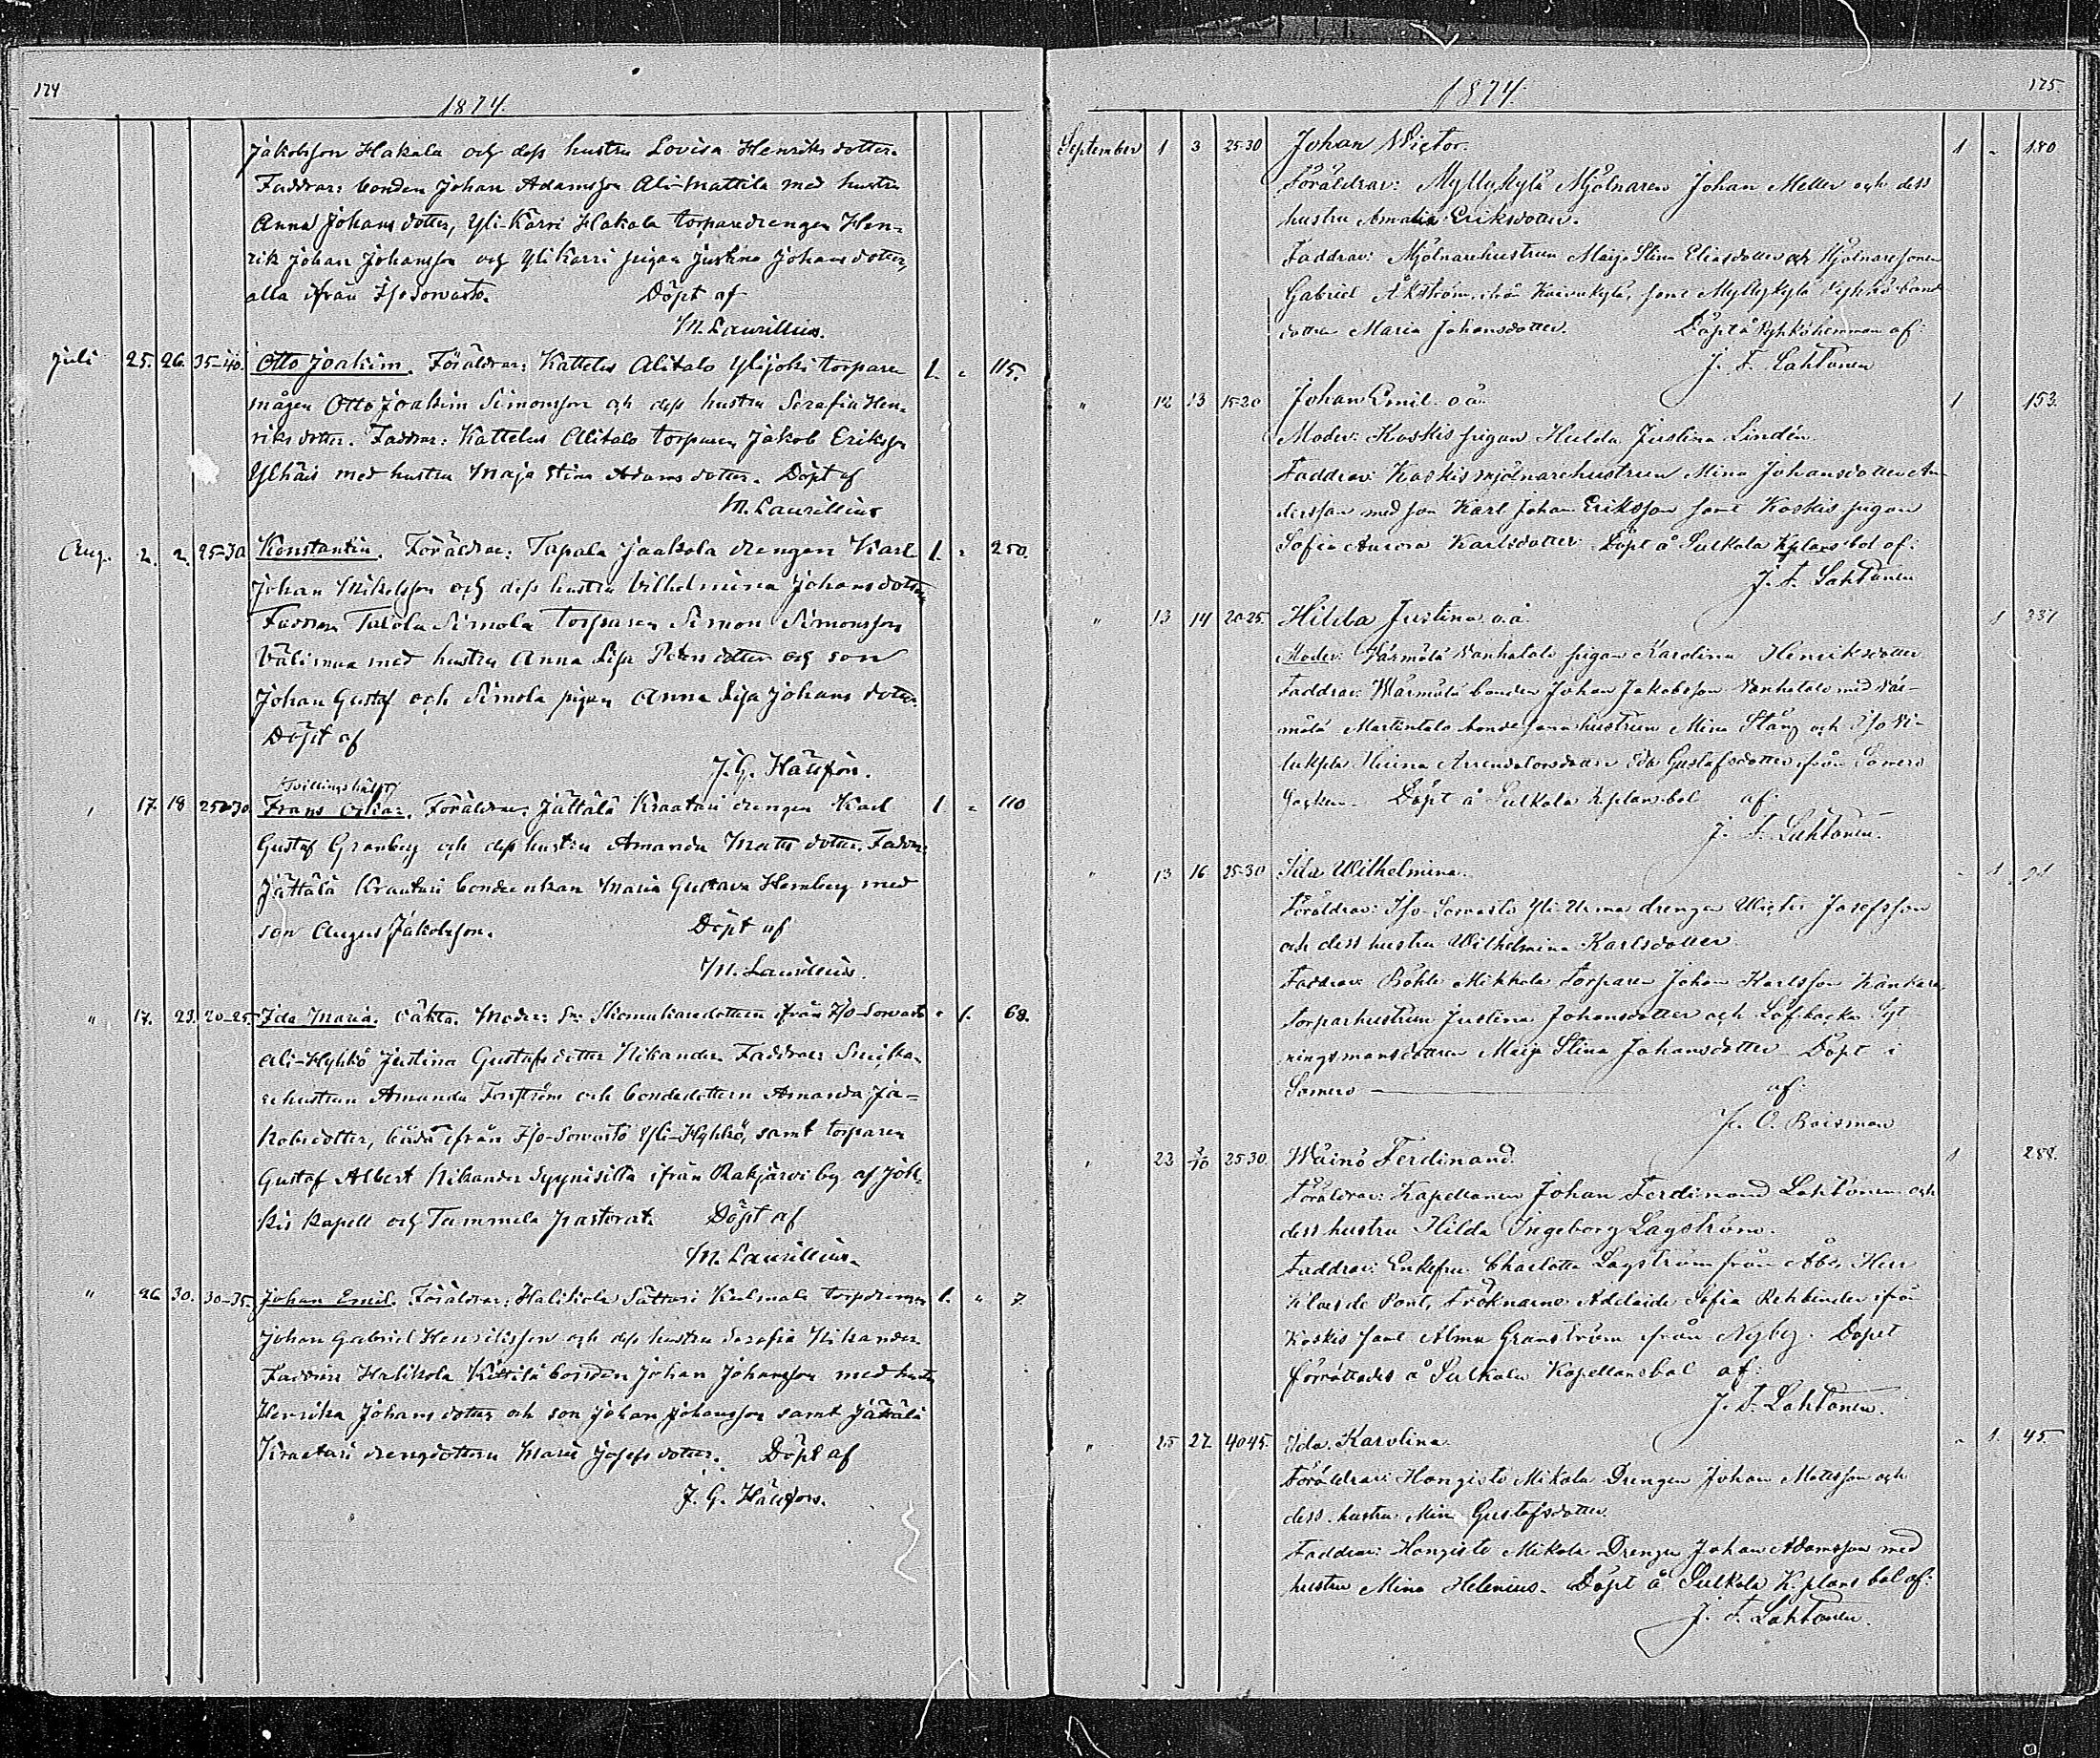 174
1874.
Jakobsson Hakala och dess hustru Lovisa Henriksdotter.
Faddrar: bonden Johan Adamsson Ali-Mattila med hustru
Anna Johansdotter, Yli-Karri Hakala torparedrengen Hen-
rik Johan Johansson och Yli Karri pigan Justina Johansdotter,
alla ifrån Iso Sorvasto. Döpt af
M. Laurillius.
Juli 25. 26. 35-40. Otto Joakim. Föräldrar: Kattelus Alitalo Ylijoki torpare 1. " 115.
mågen Otto Joakim Simonsson och dess hustru Serafia Hen-
riksdotter. Faddrar: Kattelus Alitalo torparen Jakob Eriksson
med hustru Maja Stina Adamsdotter. Döpt af
M. Laurillius
Aug. 2. 2. 25-30 Konstantin. Föräldrar: Tapala Jaakola drengen Karl 1. " 250.
Johan Mikelsson och dess hustru Vilhelmina Johansdotter
Faddrar Talola Simola torparen Simon Simonsson
Välimaa med hustru Anna Lisa Petersdotter och son
Johan Gustaf och Simola pigan Anna Lisa Johansdotter.
Döpt af
J. G. Hälsfors.
Tvillingsbarn
" 17. 18 25-30 Frans Oskar. Föräldrar. Jättälä Kraatari drengen Karl 1 " 110
Gustaf Granberg och dess hustru Amanda Mattsdotter. Faddrar:
Jättälä Kraatari bondeenkan Maria Gustava Hemberg med
son August Jakobsson. Döpt af
M. Laurillius.
" 17. 23. 20-25. Ida Maria. oäkta. Moder: ifrån Iso-Sorvasto " 1. 68.
Ali-Hykkö Justina Gustafsdotter Nikander Faddrar
hustrun Amanda Forsström och bondedottern Amanda Ja-
kobsdotter, båda ifrån Iso-Sorvasto Yli-Hykkö, samt torparen
Gustaf Albert Nikander Syynisilta ifrån Rakjärvi by af Jok-
kis kapell och Tammela pastorat. Döpt af
M. Laurillius.
" 26. 30. 30-35. Johan Emil. Föräldrar: Halikola Sattari Kulmala torpdrengen 1. " 7.
Johan Gabriel Henriksson och dess hustru Serafia Nikander
Faddrar Halikola Kittilä bonden Johan Johansson med hustru
Henrika Johansdotter och son Johan Johansson samt Jättälä
Kraatari drengdottern Maria Josefsdotter. Döpt af
J. G. Hälsfors.
175.
1874.
September 1 3 25-30 Johan Wictor. 1 " 180
Föräldrar: Myllykylä Mjölnaren Johan Meller och dess
hustru Amalia Eriksdotter.
Faddrar: Mjölnarehustrun Maija Stina Eliasdotter och Mjölnaresonen
Gabriel Åkström ifrån Koivukylä, samt Myllykylä Pyhkö bond
dottren Maria Johansdotter. Döpt å Pyhkö hemman af:
J. F. Lahtonen
" 12 13 15-20 Johan Emil. o ä. 1 153.
Moder: Koskis pigan Hulda Justina Lindén
Faddrar: Koskis mjölnarehustrun Mina Johansdotter An-
dersson med son Karl Johan Eriksson samt Koskis pigan
Sofia Aurora Karlsdotter. Döpt å Sulkala Kplans bol af:
J. F. Lahtonen
" 13 14 20-25. Hilda Justina o.ä. 1 337
Moder: Wärmälä Vanhatalo pigan Karolina Henriksdotter
Faddrar: Wärmälä bonden Johan Jakobsson Vanhatalo med Vär-
mälä Martintalo bondesons hustrun Mina Stång och Iso Vi-
Arrendatorsdotter Ida Gustafsdotter ifrån Somero
Socken. Döpt å Sulkala Kplansbol af:
J. F. Lahtonen.
" 13 16 25-30 Ida Wilhelmina. " 1.
Föräldrar: Iso-Sorvasto Yli-Urma drengen Wictor Josefsson
och dess hustru Wilhelmina Karlsdotter
Faddrar: Mikkola Torparen Johan Karlsson Kankare,
torparhustrun Justina Johansdotter och Löfbacka Syt-
ningsmansdottren Maija Stina Johansdotter Döpt i
Somero — af:
J. O. Roisman
" 22 3/10 25-30 Wäinö Ferdinand. 1 288.
Föräldrar: Kapellanen Johan Ferdinand Lahtonen och
dess hustru Hilda Ingeborg Lagström.
Faddrar: Enkefru Charlotta Lagström från Åbo, Herr
Klas de Pont, Fröknarne Adelaide Sofia Rehbinder ifrån
Koskis samt Alma Granström från Nyby. Dopet
förrättades å Sulkala Kapellansbol af:
J. F. Lahtonen.
" 25 27 40-45. Ida Karolina. " 1. 45
Föräldrar: Hongisto Mikola Drengen Johan Matsson och
dess hustru Mina Gustafsdotter.
Faddrar: Hongisto Mikola Drengen Johan Adamsson med
hustru Mina Helenius. Döpt å Sulkala K.plans bol af:
J. F. Lahtonen.